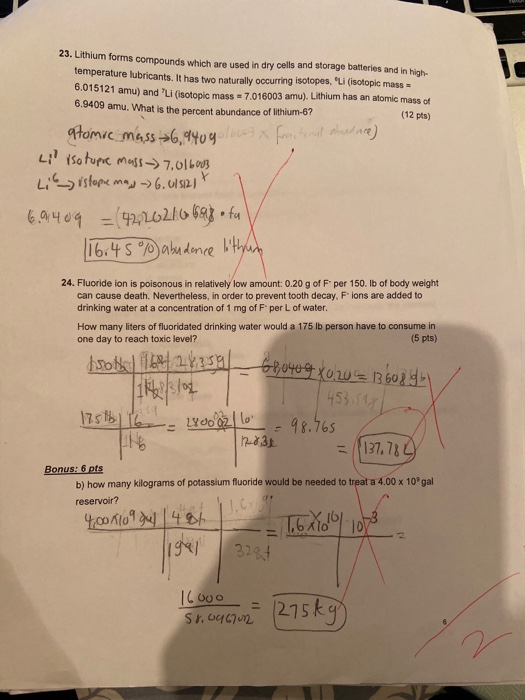 23. Lithium forms compounds which are used in dry cells and storage batteries and in high-
temperature lubricants. It has two naturally occurring isotopes, ⁶Li (isotopic mass =
6.015121 amu) and ⁷Li (isotopic mass = 7.016003 amu). Lithium has an atomic mass of
6.9409 amu. What is the percent abundance of lithium-6?
(12 pts)
atomic mass → 6.9409
Li⁷ isotope mass → 7.016003
Li⁶ → mass → 6.015121
6.9409 =
16.45% abudance lithium
24. Fluoride ion is poisonous in relatively low amount: 0.20 g of F⁻ per 150. lb of body weight
can cause death. Nevertheless, in order to prevent tooth decay, F⁻ ions are added to
drinking water at a concentration of 1 mg of F⁻ per L of water.
How many liters of fluoridated drinking water would a 175 lb person have to consume in
one day to reach toxic level?
(5 pts)
150 lb 28.359
= 68040g x 0.20 = 13608g
453.59
175 lb 16 = 2800 oz = 98.765
1 lb
= 137.78 L
Bonus: 6 pts
b) how many kilograms of potassium fluoride would be needed to treat a 4.00 x 10⁹ gal
reservoir?
4.00x10⁹ gal 4 qt = 1.6x10¹⁰ 10⁻³ =
1 gal
16000
= 275 kg
6
2